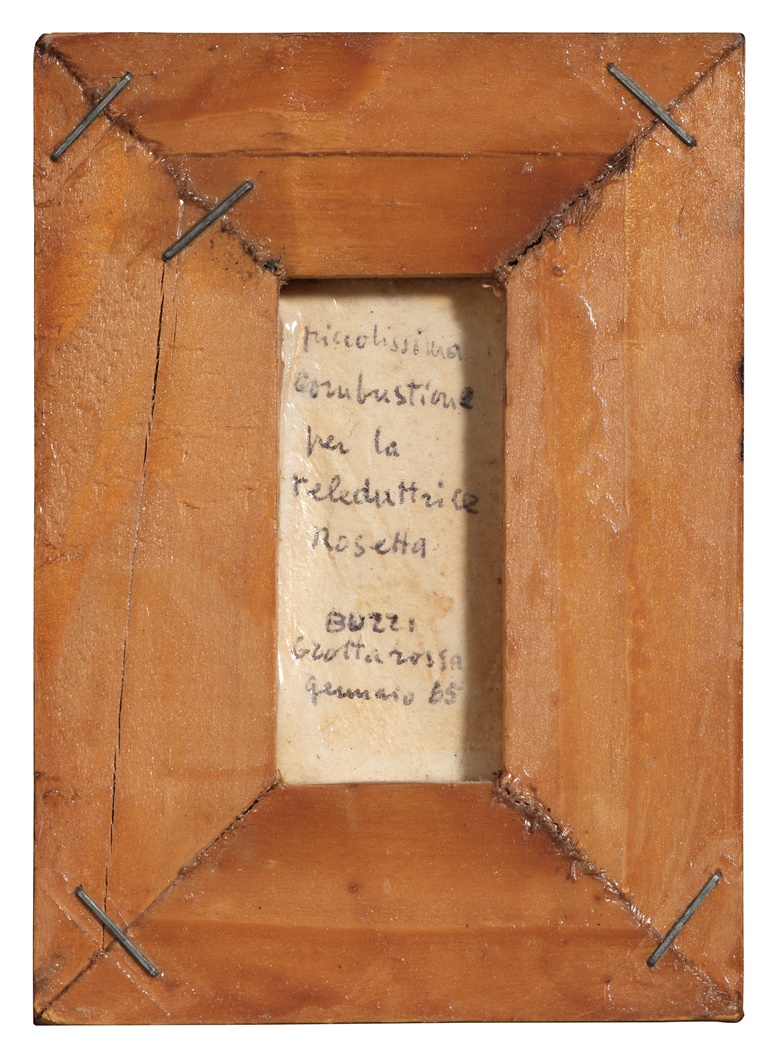 piccolissima
Combustione
per la
teleduttrice
Rosetta
BURRI
Grottarossa
gennaio 65